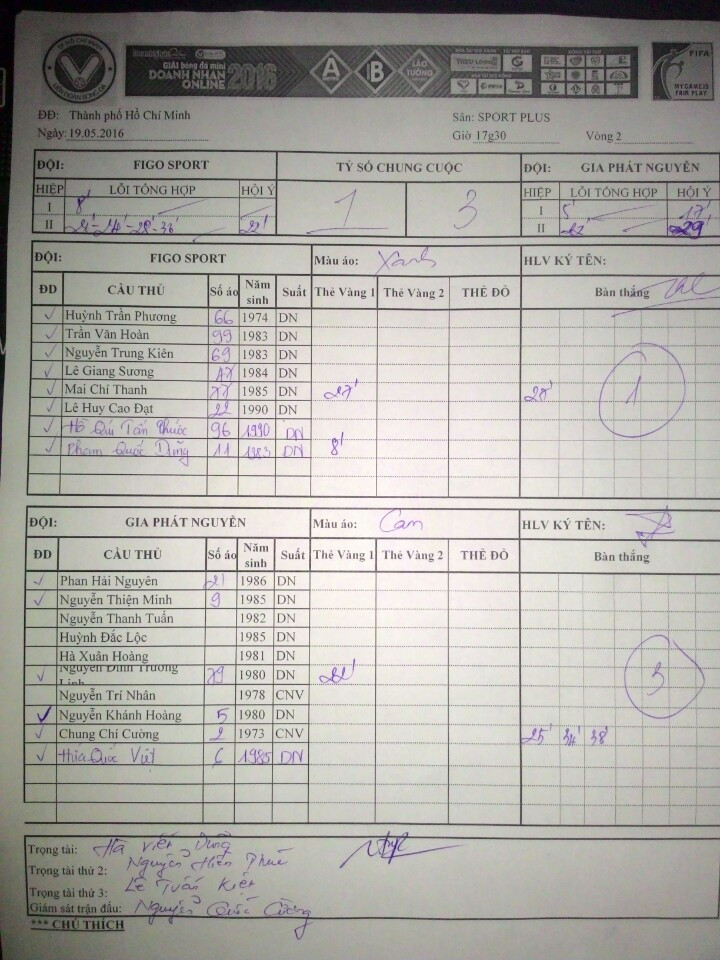 LIÊN ĐOÀN BÓNG ĐÁ
GIẢI bóng đá mini
DOANH NHÂN
ONLINE 2016
A B LÃO TƯỚNG
FIFA
MY GAME IS
FAIR PLAY
ĐĐ: Thành phố Hồ Chí Minh Sân: SPORT PLUS
Ngày: 19.05.2016 Giờ 17g30 Vòng 2
ĐỘI: FIGO SPORT TỶ SỐ CHUNG CUỘC ĐỘI: GIA PHÁT NGUYÊN
HIỆP LỖI TỔNG HỢP HỘI Ý 1 3 HIỆP LỖI TỔNG HỢP HỘI Ý
I 8' I 5' 17'
II 22' II 22' 29'
ĐỘI: FIGO SPORT Màu áo: Xanh HLV KÝ TÊN:
ĐD CẦU THỦ Số áo Năm sinh Suất Thẻ Vàng 1 Thẻ Vàng 2 THẺ ĐỎ Bàn thắng
✓ Huỳnh Trần Phương 66 1974 DN
✓ Trần Văn Hoàn 99 1983 DN
✓ Nguyễn Trung Kiên 69 1983 DN
✓ Lê Giang Sương 17 1984 DN
✓ Mai Chí Thanh 77 1985 DN 27' 28' 1
✓ Lê Huy Cao Đạt 22 1990 DN
✓ Hồ Quí Tấn Phước 96 1990 DN
✓ Phạm Quốc Dũng 11 1983 DN 8'
ĐỘI: GIA PHÁT NGUYÊN Màu áo: Cam HLV KÝ TÊN:
ĐD CẦU THỦ Số áo Năm sinh Suất Thẻ Vàng 1 Thẻ Vàng 2 THẺ ĐỎ Bàn thắng
✓ Phan Hải Nguyên 21 1986 DN
✓ Nguyễn Thiện Minh 9 1985 DN
Nguyễn Thanh Tuấn 1982 DN
Huỳnh Đắc Lộc 1985 DN
Hà Xuân Hoàng 1981 DN
✓ Nguyễn Đình Trường Linh 79 1980 DN 22' 3
Nguyễn Trí Nhân 1978 CNV
✓ Nguyễn Khánh Hoàng 5 1980 DN
✓ Chung Chí Cường 2 1973 CNV 25' 34' 38'
✓ Hứa Quốc Việt 6 1985 DN
Trọng tài: Hà Viết Dũng
Trọng tài thứ 2: Nguyễn Hiền Thuế
Trọng tài thứ 3: Lê Tuấn Kiệt
Giám sát trận đấu: Nguyễn Quốc Cường
*** CHÚ THÍCH